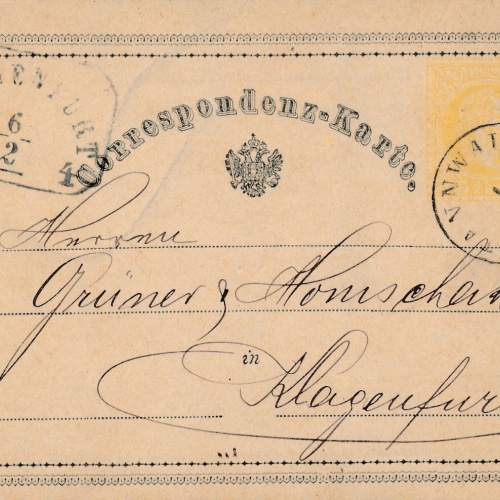 ENFURT
6
2
4
Correspondenz-Karte.
AUNWA
Herren
Grüner & Homscha
in
Klagenfur